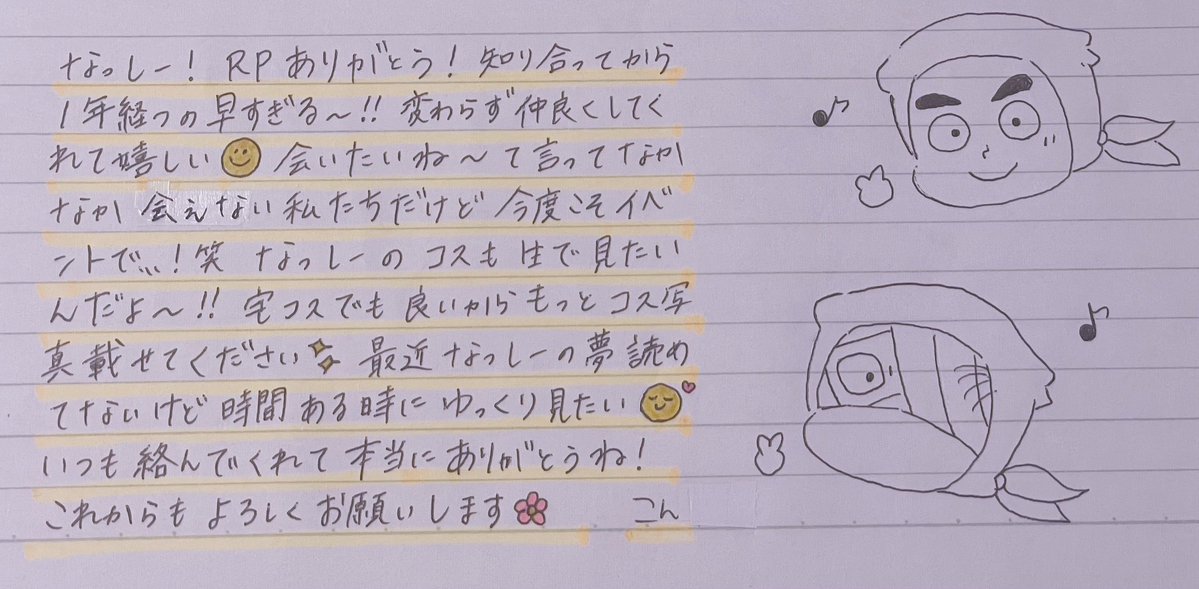 なっしー! RPありがとう! 知り合ってから
1年経つの早すぎる〜!! 変わらず仲良くしてく
れて嬉しい 会いたいね〜て言ってなか
なか会えない私たちだけど今度こそイベ
ントで…!笑 なっしーのコスも生で見たい
んだよ〜!! 宅コスでも良いからもっとコス写
真載せてください 最近なっしーの夢読め
てないけど時間ある時にゆっくり見たい
いつも絡んでくれて本当にありがとうね!
これからもよろしくお願いします
こん